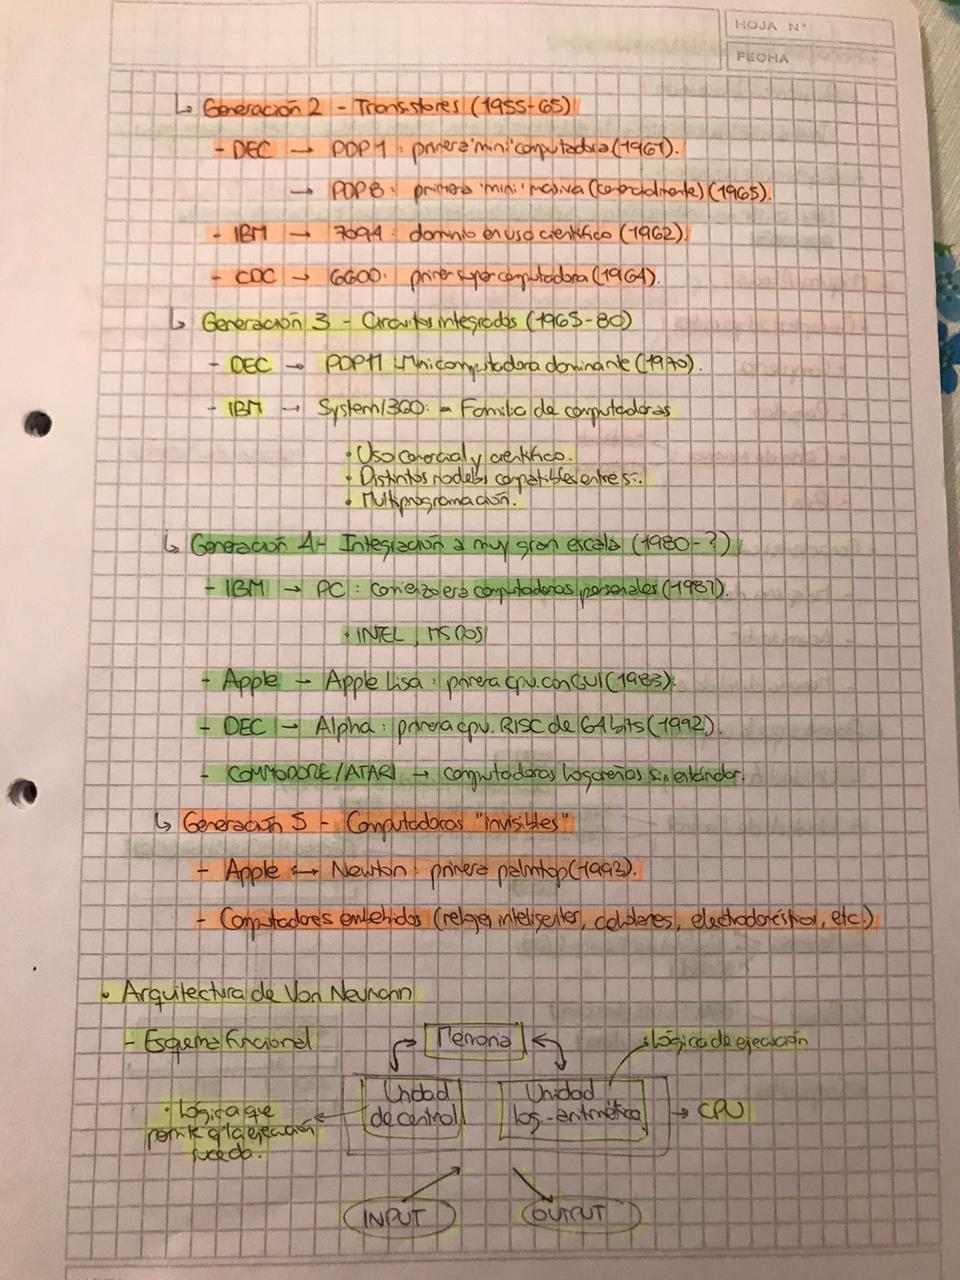 HOJA N°
FECHA
↳ Generación 2 - Transistores (1955-65)
- DEC → PDP1 : primera "mini" computadora (1961).
→ PDP8 : primera "mini" masiva (comercialmente) (1965).
- IBM → 7094 : dominio en uso científico (1962).
- CDC → 6600: primer supercomputadora (1964).
↳ Generación 3 - Circuitos integrados (1965-80)
- DEC → PDP11 : Minicomputadora dominante (1970).
- IBM → System/360: - Familia de computadoras
• Uso comercial y científico.
• Distintos modelos compatibles entre sí.
• Multiprogramación.
↳ Generación 4 - Integración a muy gran escala (1980-?)
- IBM → PC : comienzo era computadoras personales (1981).
• INTEL, MS DOS
- Apple → Apple Lisa : primera cpu. con GUI (1983).
- DEC → Alpha : primera cpu. RISC de 64 bits (1992).
- COMMODORE/ATARI → computadoras hogareñas sin estándar.
↳ Generación 5 - Computadoras "invisibles"
- Apple → Newton : primera palmtop (1993).
- Computadores embebidos (relojes inteligentes, celulares, electrodomésticos, etc.)
• Arquitectura de Von Neumann
- Esquema funcional
Memoria
• Lógica de ejecución
Unidad de control
Unidad log.-aritmética
→ CPU
• Lógica que
permite q' la ejecución
suceda.
INPUT
OUTPUT